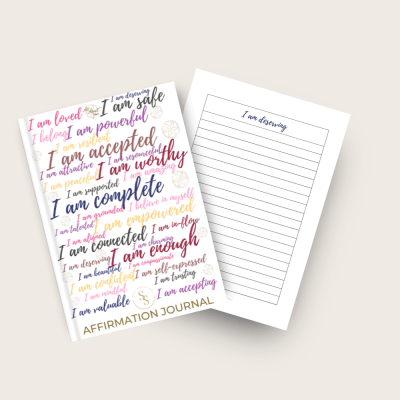 I am deserving
I am loved
I am safe
I belong
I am powerful
I am resilient
I am accepted
I am resourceful
I am attractive
I am worthy
I am peaceful
I am amazing
I am supported
I am complete
I believe in myself
I am grounded
I am talented
I am empowered
I am aligned
I am in-flow
I am connected
I am charming
I am enough
I am deserving
I am compassionate
I am beautiful
I am self-expressed
I am confident
I am trusting
I am mindful
I am accepting
I am valuable
AFFIRMATION JOURNAL
I am deserving